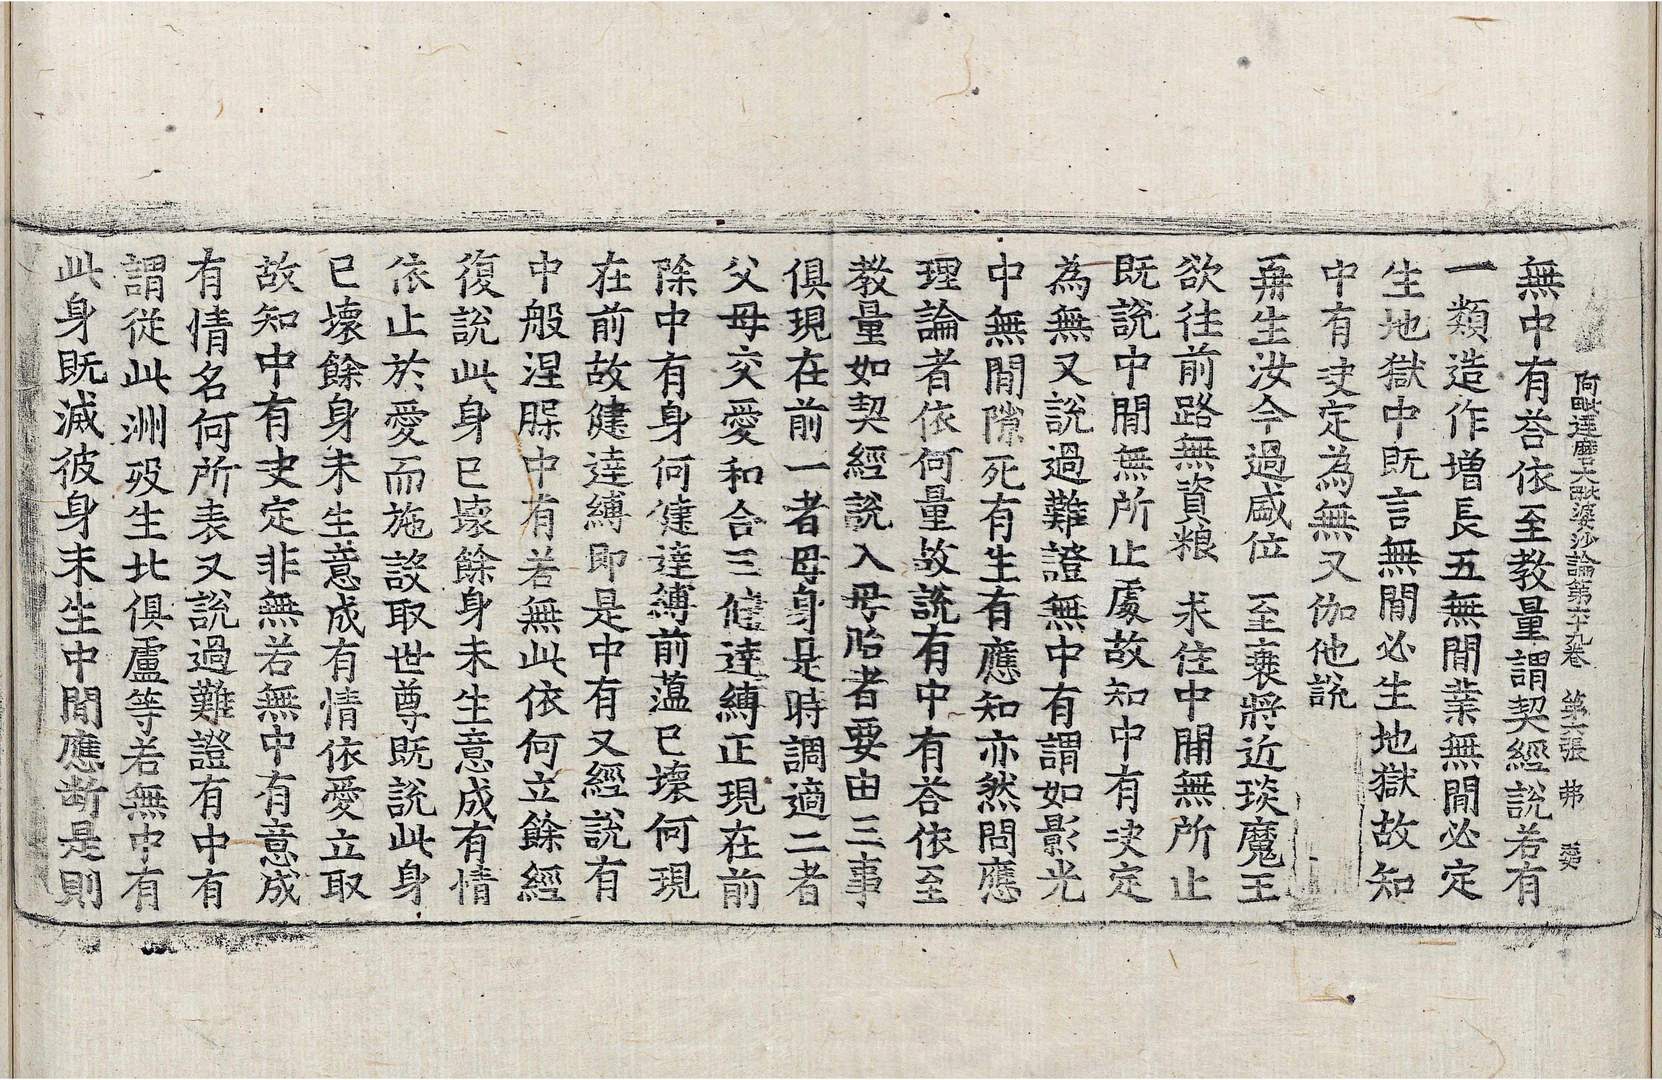 阿毗達磨大毗婆沙論第六十九卷 第六張 弗
無中有荅依至教量謂契經說若有
一類造作增長五無間業無間必定
生地獄中既言無間必生地獄故知
中有决定為無又伽他說
再生汝今過盛位 至衰將近琰魔王
欲往前路無資粮 求住中間無所止
既說中間無所止處故知中有决定
為無又說過難證無中有謂如影光
中無間隙死有生有應知亦然問應
理論者依何量故說有中有荅依至
教量如契經說入母胎者要由三事
俱現在前一者母身是時調適二者
父母交愛和合三健達縛正現在前
除中有身何健達縛前蘊已壞何現
在前故健達縛即是中有又經說有
中般涅槃中有若無此依何立餘經
復說此身已壞餘身未生意成有情
依止於愛而施設取世尊既說此身
已壞餘身未生意成有情依愛立取
故知中有决定非無若無中有意成
有情名何所表又說過難證有中有
謂從此洲歿生北俱盧等若無中有
此身既滅彼身未生中間應斷是則